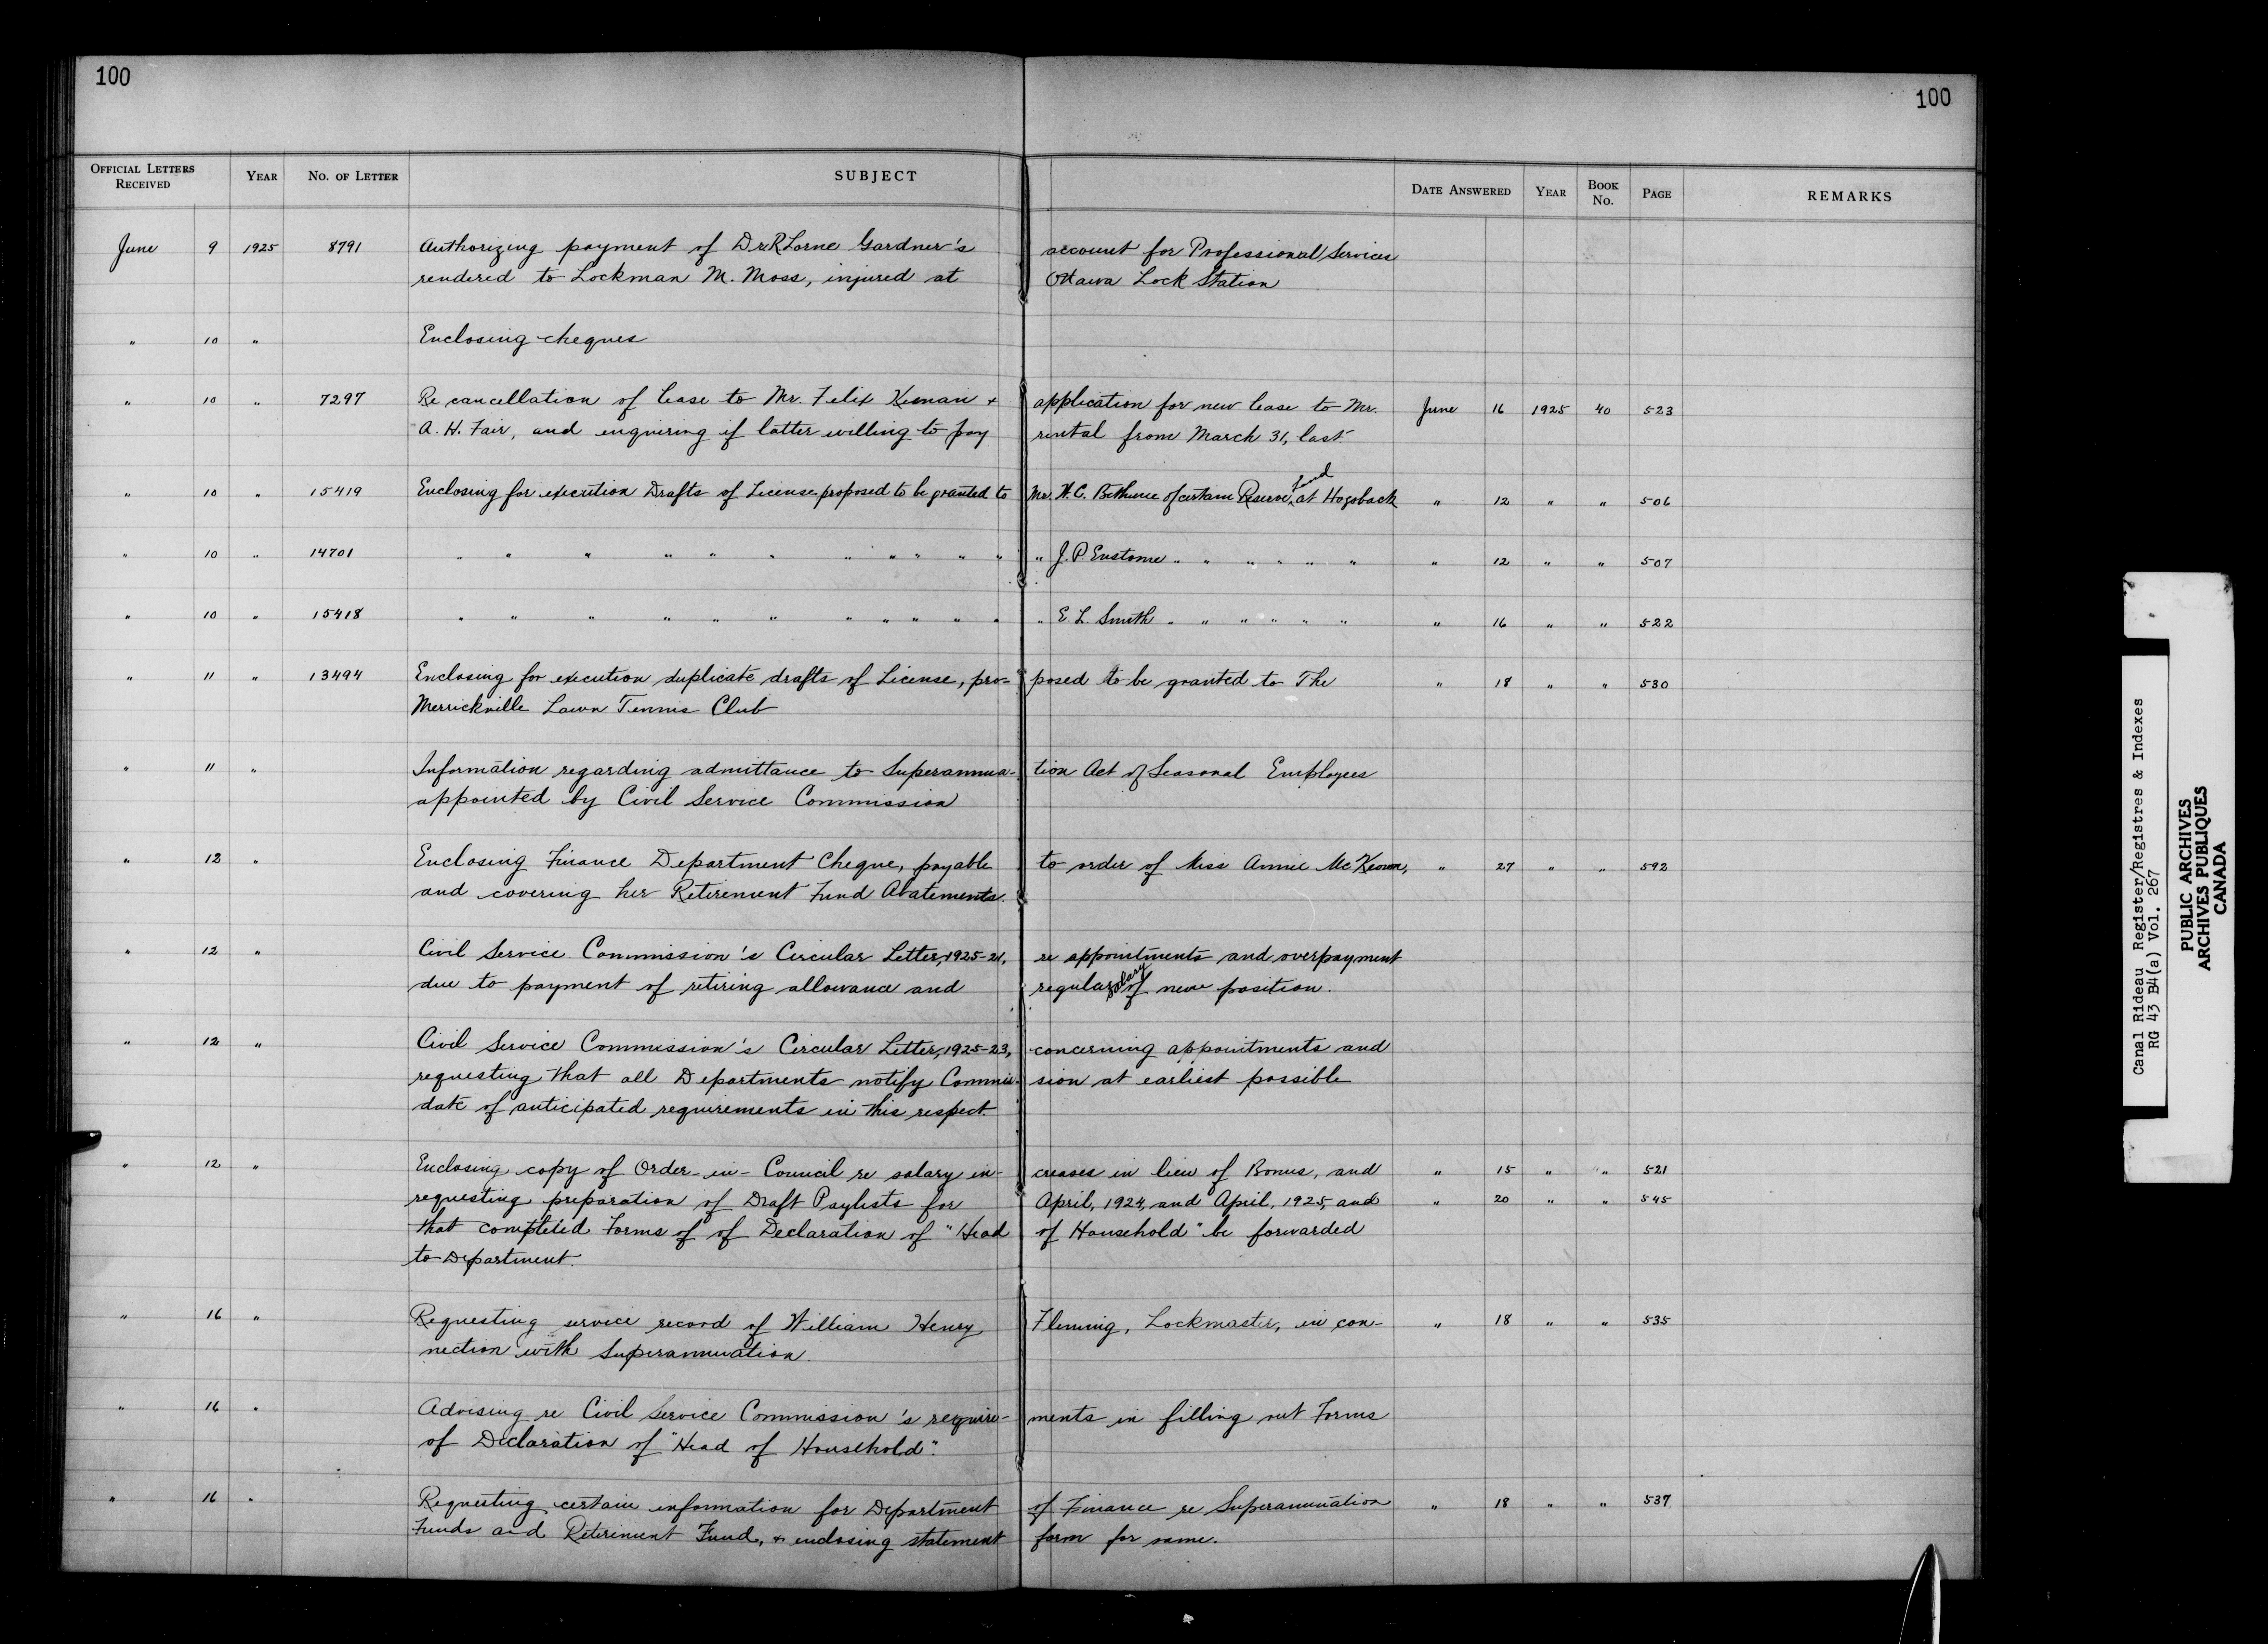 100
100
OFFICIAL LETTERS RECEIVED YEAR NO. OF LETTER SUBJECT DATE ANSWERED YEAR BOOK NO. PAGE REMARKS
June 9 1925 8791 Authorizing payment of Dr R Lorne Gardner's account for Professional Services
rendered to Lockman M. Moss, injured at Ottawa Lock Station
" 10 " Enclosing cheques
" 10 " 7297 Re cancellation of lease to Mr. Felix Kernan & application for new lease to Mr. June 16 1925 40 523
A. H. Fair, and enquiring if latter willing to pay rental from March 31, last
" 10 " 15419 Enclosing for execution Drafts of License proposed to be granted to Mr. W. C. Bethune of certain Reserve land at Hogsback " 12 " " 506
" 10 " 14701 " " " " " " " " " " " " J. P. Eustome " " " " " " " 12 " " 507
" 10 " 15418 " " " " " " " " " " " " E. L. Smith " " " " " " " 16 " " 522
" 11 " 13494 Enclosing for execution duplicate drafts of License, pro- posed to be granted to The " 18 " " 530
Merrickville Lawn Tennis Club
" 11 " Information regarding admittance to Superannua- tion Act of Seasonal Employees
appointed by Civil Service Commission
" 12 " Enclosing Finance Department Cheque, payable to order of Miss Annie McKeown, " 27 " " 592
and covering her Retirement Fund Abatements.
" 12 " Civil Service Commission's Circular Letter, 1925-21, re appointments and overpayment
due to payment of retiring allowance and regular salary of new position.
" 12 " Civil Service Commission's Circular Letter, 1925-23, concerning appointments and
requesting that all Departments notify Commis- sion at earliest possible
date of anticipated requirements in this respect.
" 12 " Enclosing copy of Order-in-Council re salary in- creases in lieu of Bonus, and " 15 " " 521
requesting preparation of Draft Paylists for April, 1924, and April, 1925, and " 20 " " 545
that completed Forms of of Declaration of "Head of Household" be forwarded
to Department.
" 16 " Requesting service record of William Henry Fleming, Lockmaster, in con- " 18 " " 535
nection with Superannuation.
" 16 " Advising re Civil Service Commission's require- ments in filling out Forms
of Declaration of "Head of Household".
" 16 " Requesting certain information for Department of Finance re Superannuation " 18 " " 537
Funds and Retirement Fund, & enclosing statement form for same.
Canal Rideau Register/Registres & Indexes
RG 43 B4(a) Vol. 267
PUBLIC ARCHIVES
ARCHIVES PUBLIQUES
CANADA